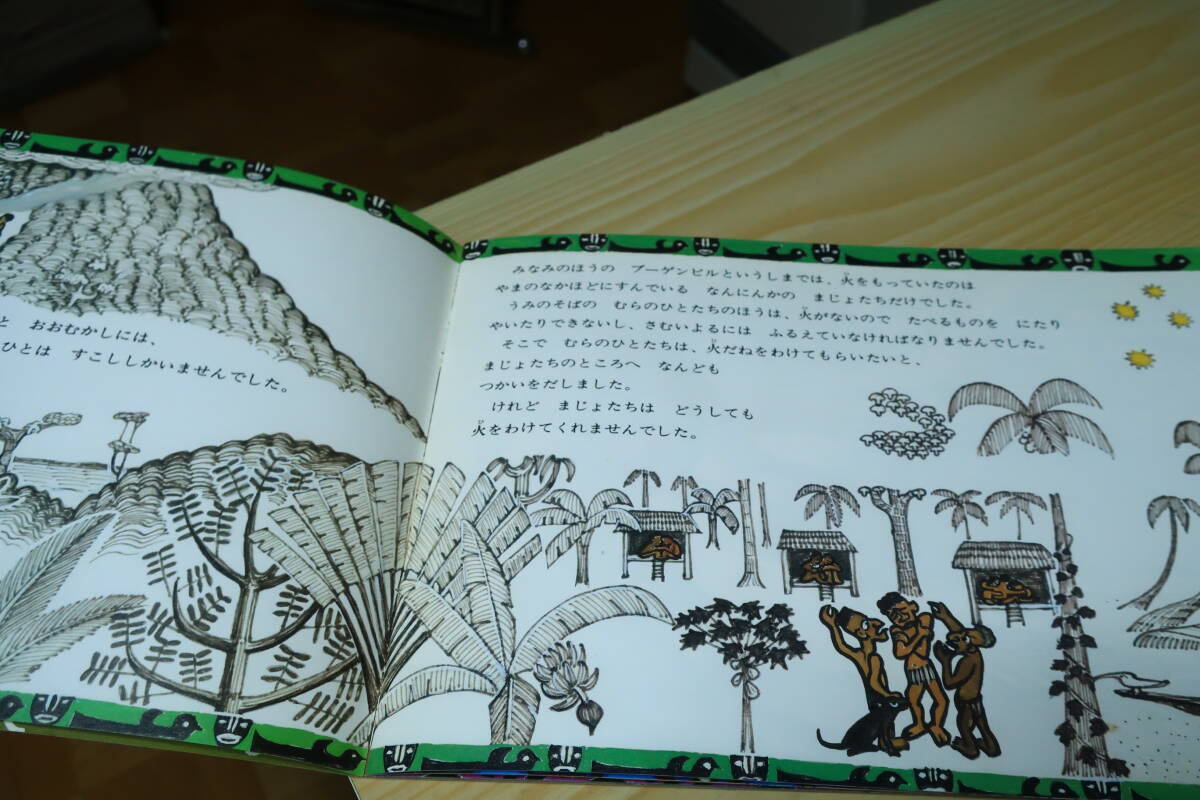 と　おおむかしには、
ひとは　すこししかいませんでした。
みなみのほうの　ブーゲンビルというしまでは、火をもっていたのは
やまのなかほどにすんでいる　なんにんかの　まじょたちだけでした。
うみのそばの　むらのひとたちのほうは、火がないので　たべるものを　にたり
やいたりできないし、さむいよるには　ふるえていなければなりませんでした。
そこで　むらのひとたちは、火だねをわけてもらいたいと、
まじょたちのところへ　なんども
つかいをだしました。
けれど　まじょたちは　どうしても
火をわけてくれませんでした。